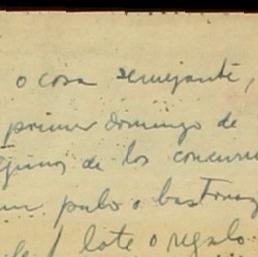 o cosa semejante,
primer domingo de
de los concur
palo o
lote o regalo